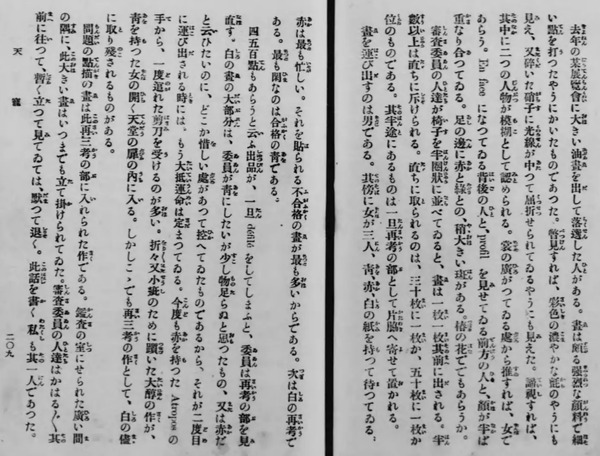 去年の某展覽會に大きい油畫を出して落選した人がある。畫は頗る強烈な顏料で細
い點を打つたやうにかいたものであつた。瞥見すれば、彩色の濃やかな氈のやうにも
見え、又碎いた硝子に光線が中つて屈折せられてゐるやうにも見えた。諦視すれば、
其中に二つの人物が模糊として認められる。裳の廣がつてゐる處から推すれば、女で
あらう。En face になつてゐる背後の人と、profil を見せてゐる前方の人と、顏が半ば
重なり合つてゐる。足の邊に赤と綠との、稍大きい斑がある。椿の花でゞもあらうか。
審査委員の人達が椅子を半圈狀に並べてゐると、畫は一枚一枚其前に出される。半
數以上は直ちに斥けられる。直ちに取られるのは、三十枚に一枚か、五十枚に一枚か
位のものである。其半途にあるものは一旦再考の部として片脇へ寄せて置かれる。
畫を運び出すのは男である。其傍に女が三人、靑、赤、白の紙を持つて待つてゐる。
赤は最も忙しい。それを貼られる不合格の畫が最も多いからである。次は白の再考で
ある。最も閑なのは合格の靑である。
四五百點もあらうと云ふ出品が、一旦 défilé をしてしまふと、委員は再考の部を見
直す。白の畫の大部分は、委員が靑にしたいが少し物足らぬと思つたもの、又は赤だ
と云ひたいのに、どこか惜しい處があつて控へてゐたものであるから、それが二度目
に運び出される時には、もう大抵運命は定まつてゐる。今度も赤を持つた Atropos の
手から、一度逭れた剪刀を受けるのが多い。折々又小疵のために躓いた大醇の作が、
靑を持つた女の開く天堂の扉の內に入る。しかしこゝでも再三考の作として、白の儘
に取り殘されるものがある。
問題の點描の畫は此再三考の部に入れられた作である。鑑査の室にせられた廣い間
の隅に、此大きい畫はいつまでも立て掛けられてゐた。審査委員の人達はかはる〴〵其
前に往つて、暫く立つて見てゐては、默つて退く。此話を書く私も其一人であつた。
天寵
二〇九